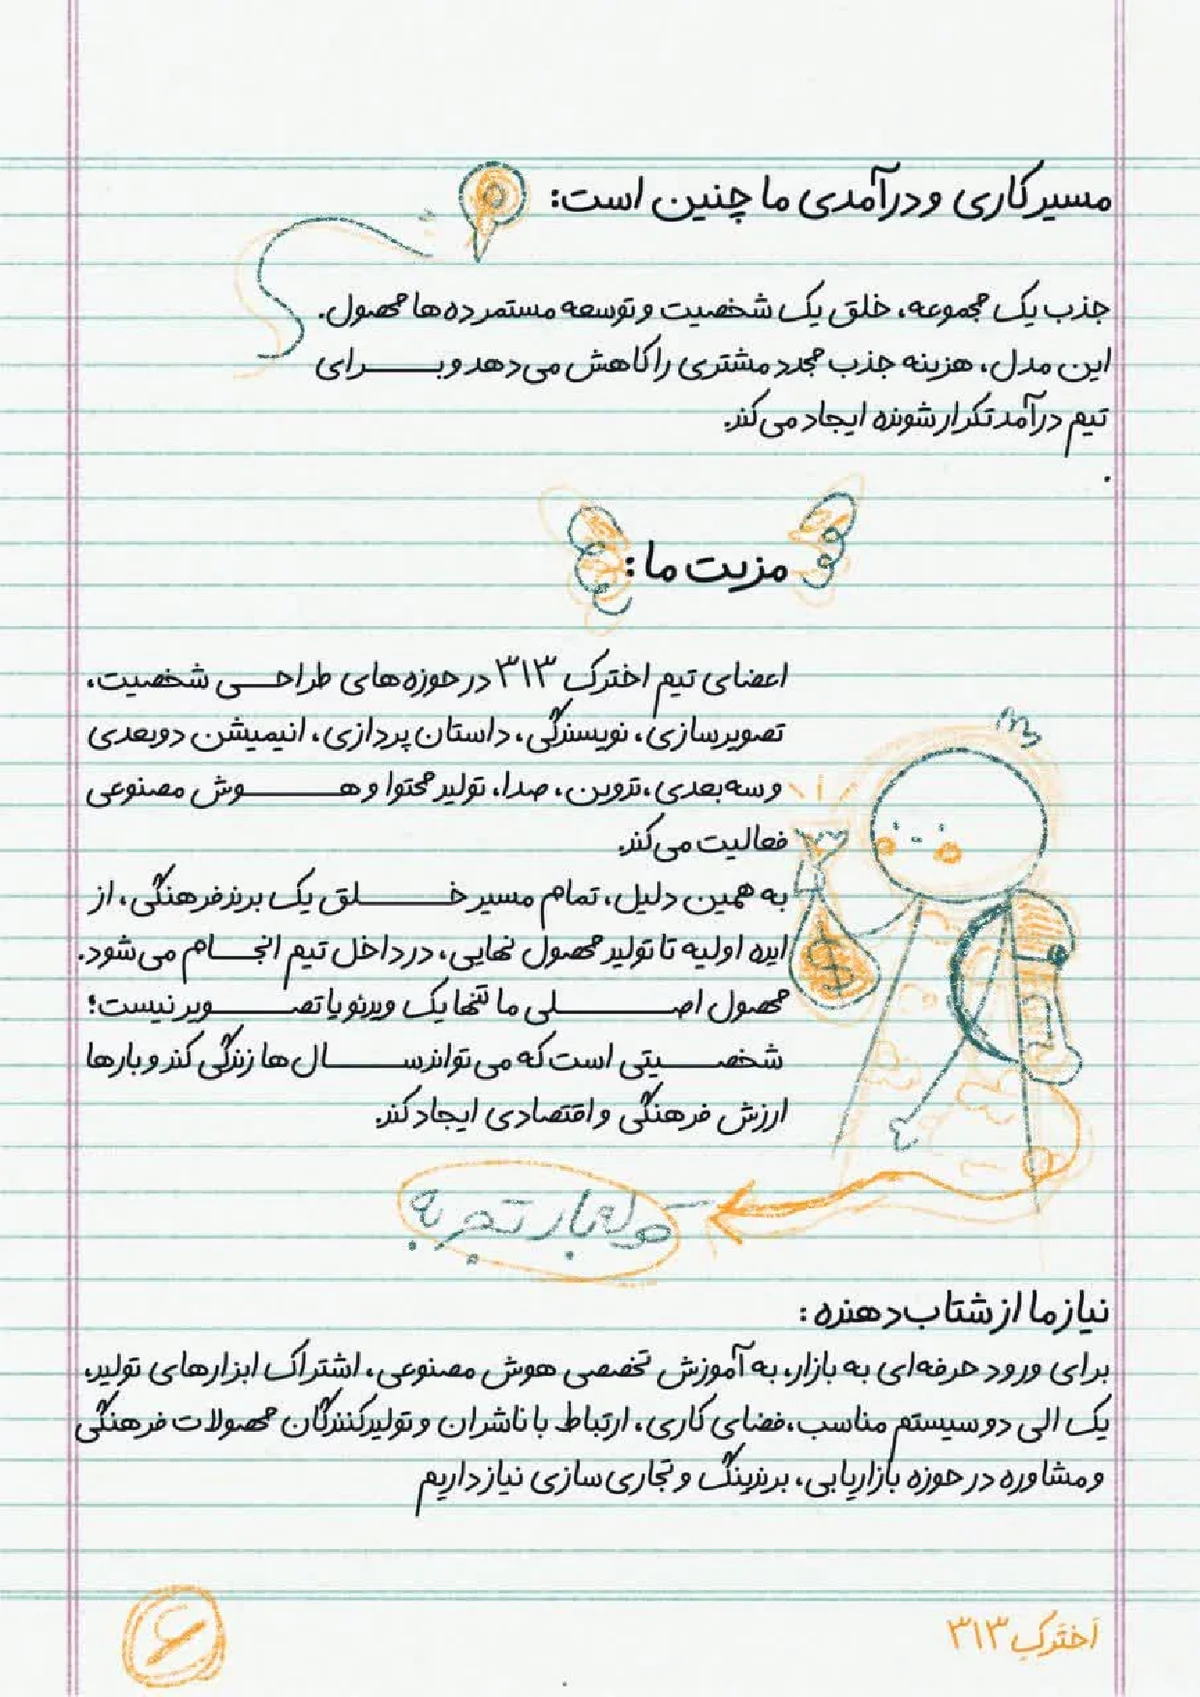 مسیر کاری و درآمدی ما چنین است:
جذب یک مجموعه، خلق یک شخصیت و توسعه مستمر ده‌ها محصول.
این مدل، هزینه جذب مجدد مشتری را کاهش می‌دهد و بـــرای
تیم درآمد تکرار شونده ایجاد می‌کند.
.
مزیت ما:
اعضای تیم اخترک ۳۱۳ در حوزه‌های طراحــی شخصیت،
تصویرسازی، نویسندگی، داستان پردازی، انیمیشن دوبعدی
و سه‌بعدی، تدوین، صدا، تولید محتوا و هـــــوش مصنوعی
فعالیت می‌کند.
به همین دلیل، تمام مسیر خـــــلق یک برند فرهنگی، از
ایده اولیه تا تولید محصول نهایی، در داخل تیم انجـــام می‌شود.
محصول اصـــــلی ما تنها یک ویدئو یا تصـــــویر نیست؛
شخصـــیتی است که می تواند ســـــال‌ها زندگی کند و بارها
ارزش فرهنگی و اقتصادی ایجاد کند.
کوله‌بار تجربه
نیاز ما از شتاب‌دهنده:
برای ورود حرفه‌ای به بازار، به آموزش تخصصی هوش مصنوعی، اشتراک ابزارهای تولید،
یک الی دو سیستم مناسب، فضای کاری، ارتباط با ناشران و تولیدکنندگان محصولات فرهنگی
و مشاوره در حوزه بازاریابی، برندینگ و تجاری سازی نیاز داریم
اَختَرکِ ۳۱۳
۶